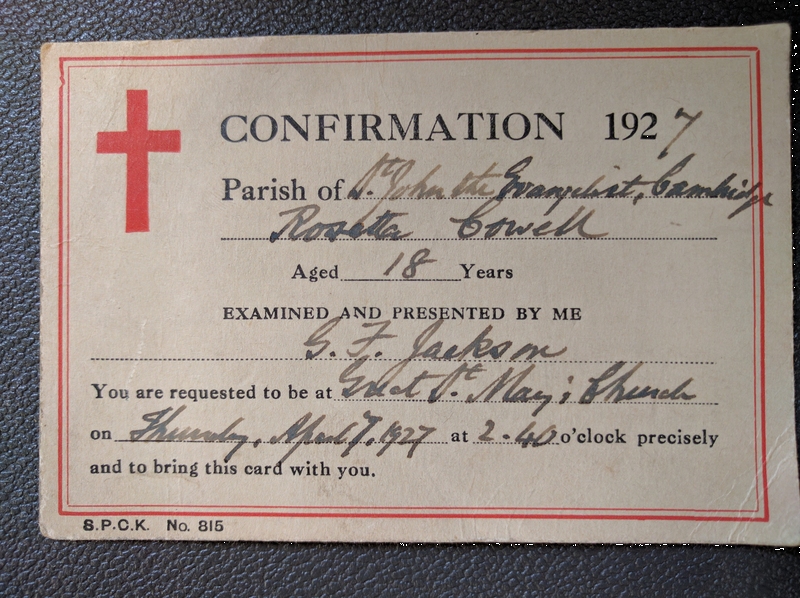 CONFIRMATION 1927
Parish of St. John the Evangelist, Cambridge
Rosetta Cowell
Aged 18 Years
EXAMINED AND PRESENTED BY ME
G. F. Jackson
You are requested to be at Great St. Mary's Church
on Thursday, April 7, 1927 at 2.40 o'clock precisely
and to bring this card with you.
S.P.C.K. No. 815